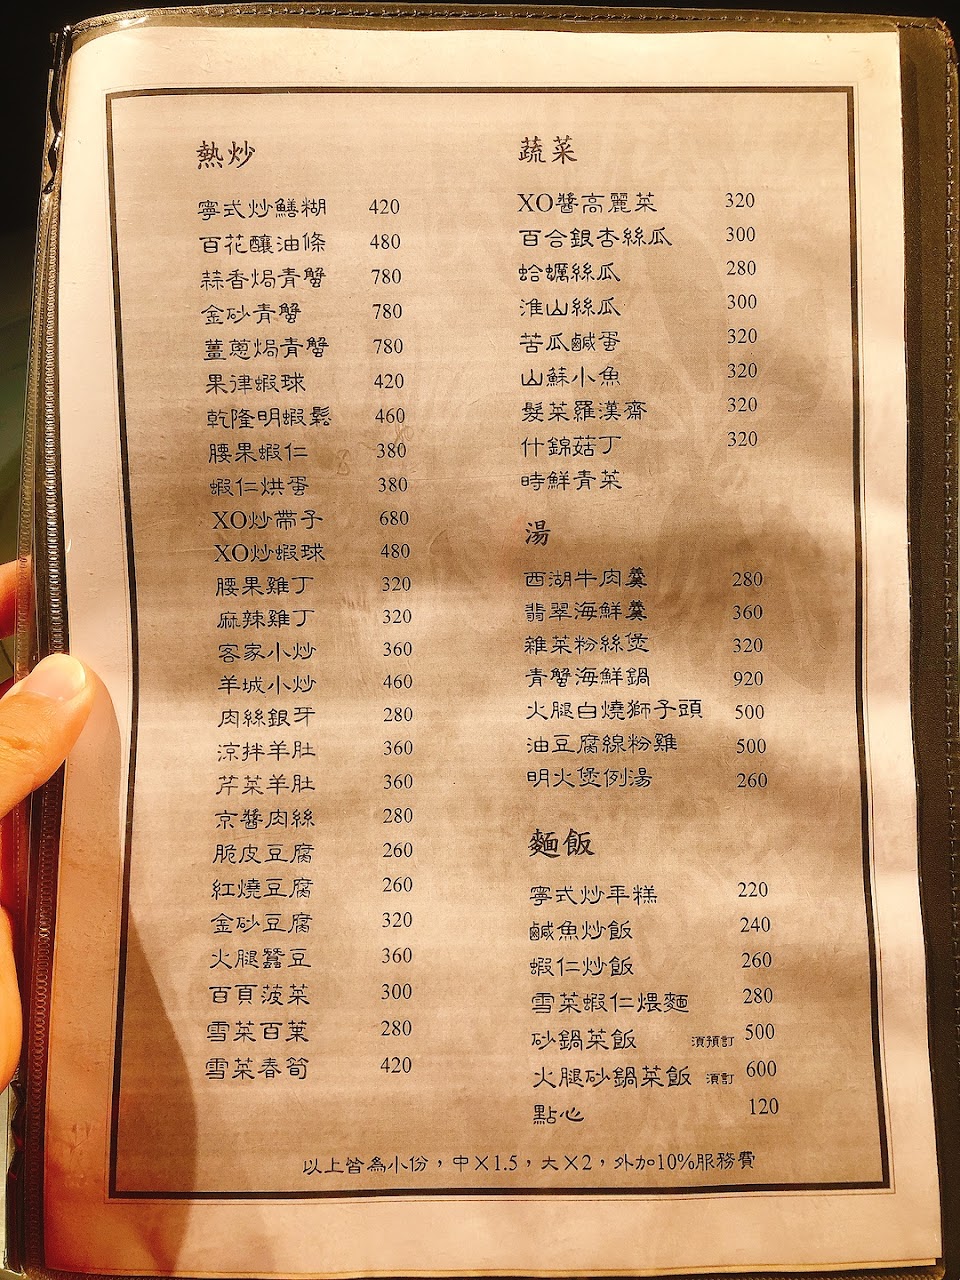 熱炒
寧式炒鱔糊 420
百花釀油條 480
蒜香焗青蟹 780
金砂青蟹 780
薑蔥焗青蟹 780
果律蝦球 420
乾隆明蝦鬆 460
腰果蝦仁 380
蝦仁烘蛋 380
XO炒帶子 680
XO炒蝦球 480
腰果雞丁 320
麻辣雞丁 320
客家小炒 360
羊城小炒 460
肉絲銀牙 280
涼拌羊肚 360
芹菜羊肚 360
京醬肉絲 280
脆皮豆腐 260
紅燒豆腐 260
金砂豆腐 320
火腿蠶豆 360
百頁菠菜 300
雪菜百葉 280
雪菜春筍 420
蔬菜
XO醬高麗菜 320
百合銀杏絲瓜 300
蛤蠣絲瓜 280
淮山絲瓜 300
苦瓜鹹蛋 320
山蘇小魚 320
髮菜羅漢齋 320
什錦菇丁 320
時鮮青菜
湯
西湖牛肉羹 280
翡翠海鮮羹 360
雜菜粉絲煲 320
青蟹海鮮鍋 920
火腿白燒獅子頭 500
油豆腐線粉雞 500
明火煲例湯 260
麵飯
寧式炒年糕 220
鹹魚炒飯 240
蝦仁炒飯 260
雪菜蝦仁煨麵 280
砂鍋菜飯 須預訂 500
火腿砂鍋菜飯 須訂 600
點心 120
以上皆為小份，中×1.5，大×2，外加10%服務費